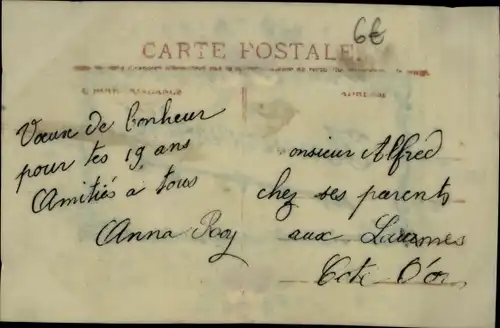 6€
CARTE POSTALE.
ADRESSE
Vœux de bonheur
pour tes 19 ans
Amitiés à tous
Anna Roy
onsieur Alfred
chez ses parents
aux Laumes
Cote d'Or